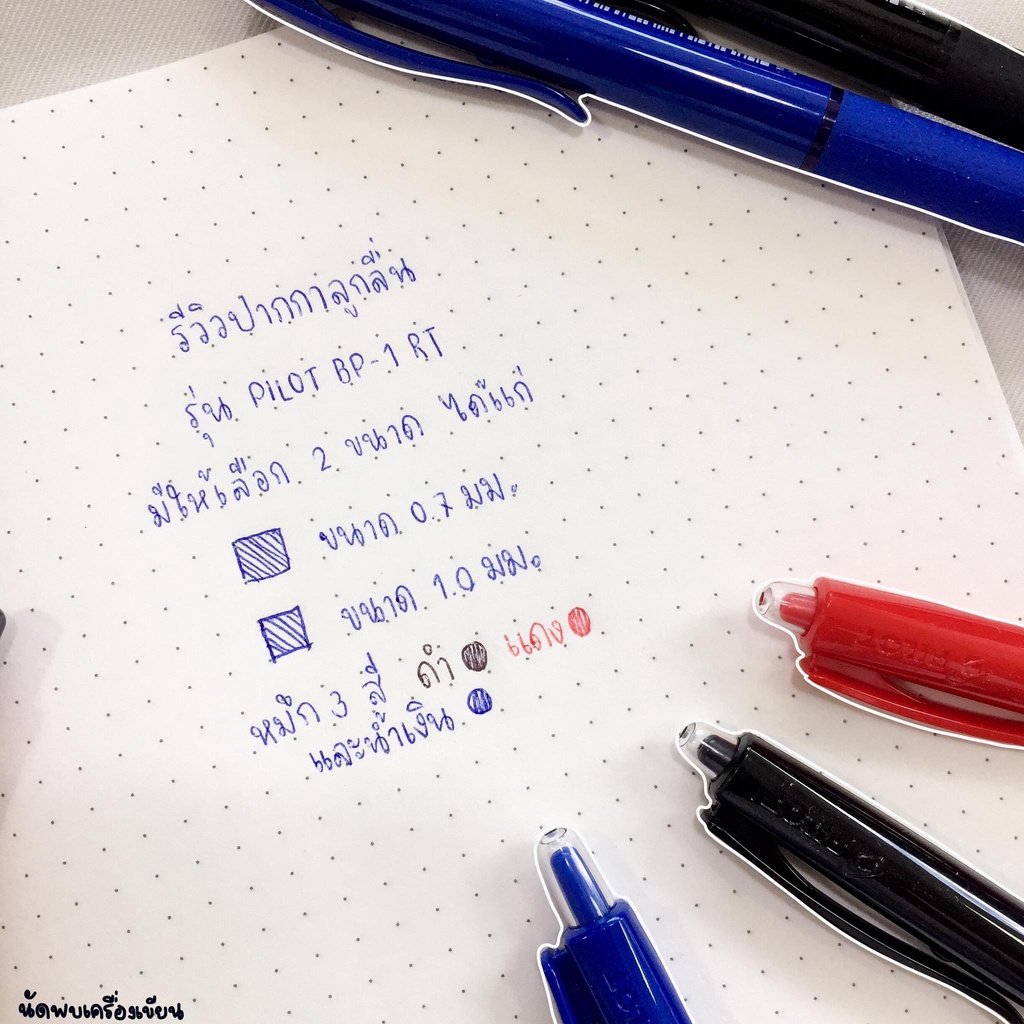 รีวิวปากกาลูกลื่น
รุ่น PILOT BP-1 RT
มีให้เลือก 2 ขนาด ได้แก่
ขนาด 0.7 มม.
ขนาด 1.0 มม.
หมึก 3 สี ดำ แดง
และน้ำเงิน
PILOT
PILOT
นัดพบเครื่องเขียน